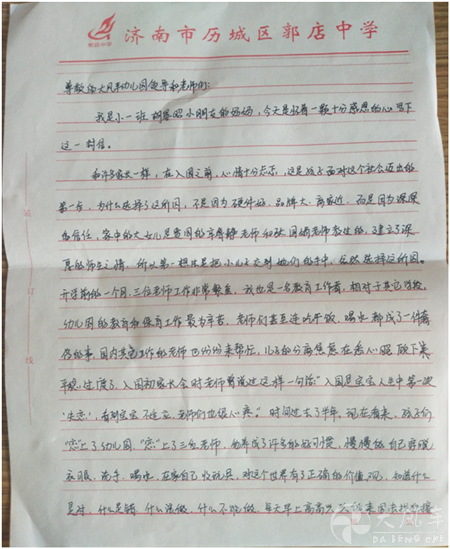 济南市历城区郭店中学
尊敬的大风车幼儿园领导和老师们:
我是小一班 小朋友的妈妈,今天是怀着一颗十分感恩的心写下
这一封信。
和许多家长一样,在入园之前,心情十分忐忑,这是孩子面对这个社会迈出的
第一步,为什么选择了这所园,不是因为硬件好、品牌大、离家近,而是因为深深
的信任,家中的大女儿是 老师和 老师教过的,建立了深
厚的师生之情,所以第一想法是把小儿子交到她们的手中,
开学前的一个月,三位老师工作非常繁重,我也是一名教育工作者,相对于其它学校,
幼儿园的教育和保育工作最为辛苦,老师们甚至连吃午饭、喝水都成了一件奢
侈的事,园内其它工作的老师也纷纷来帮忙,儿子的分离焦虑在
平稳过渡了,入园初家长会时老师曾说过这样一句话“入园是宝宝人生中第一次
‘失恋’,看到宝宝不适应,老师们也很心疼。”时间过去了半年,现在看来,孩子们
“恋”上了幼儿园,“恋”上了三位老师,他养成了许多的好习惯,慢慢做自己穿脱
衣服、洗手、喝水,在家自己收玩具,对这个世界有了正确的价值观,知道什么
是对,什么是错,什么该做,什么不能做,每天早上高高兴兴
装
订
线
大风车
DA FENG CHE